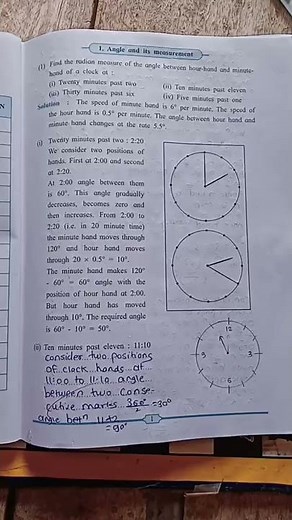 1. Angle and its measurement
(1) Find the radian measure of the angle between hour-hand and minute-
hand of a clock at :
(i) Twenty minutes past two (ii) Ten minutes past eleven
(iii) Thirty minutes past six (iv) Five minutes past one
Solution : The speed of minute hand is 6° per minute. The speed of
the hour hand is 0.5° per minute. The angle between hour hand and
minute hand changes at the rate 5.5°.
(i) Twenty minutes past two : 2:20
We consider two positions of
hands. First at 2:00 and second
at 2:20.
At 2:00 angle between them
is 60°. This angle gradually
decreases, becomes zero and
then increases. From 2:00 to
2:20 (i.e. in 20 minute time)
the minute hand moves through
120° and hour hand moves
through 20 × 0.5° = 10°.
The minute hand makes 120°
- 60° = 60° angle with the
position of hour hand at 2:00.
But hour hand has moved
through 10°. The required angle
is 60° - 10° = 50°.
(ii) Ten minutes past eleven : 11:10
consider two positions
of clock hands at
11:00 to 11:10 angle
between two conse-
cutive marks 360°/12 = 30°
angle betn 11 & 2
= 90°
12
9
3
6
1
N